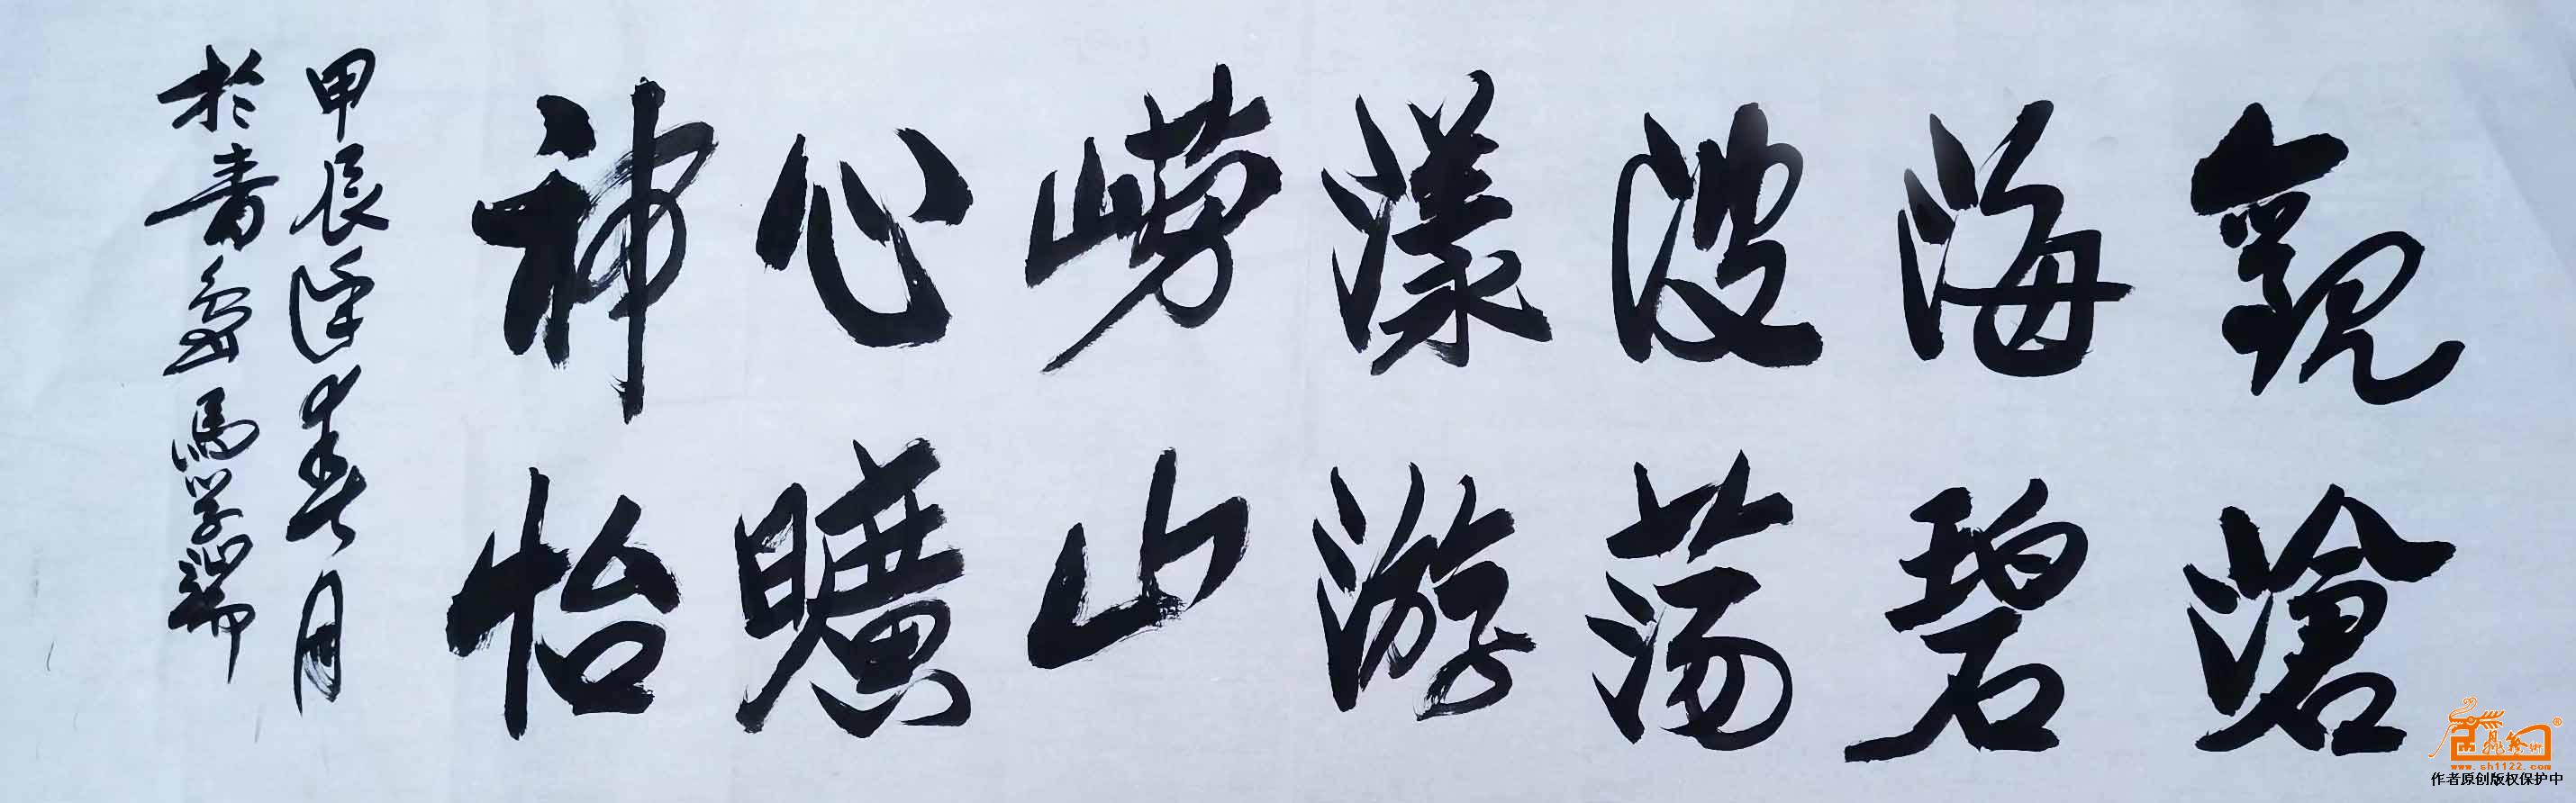 觀滄
海碧
波荡
漾游
崂山
心曠
神怡
甲辰逢春月
於青島馬学端
www.sh1122.com
作者原创版权保护中